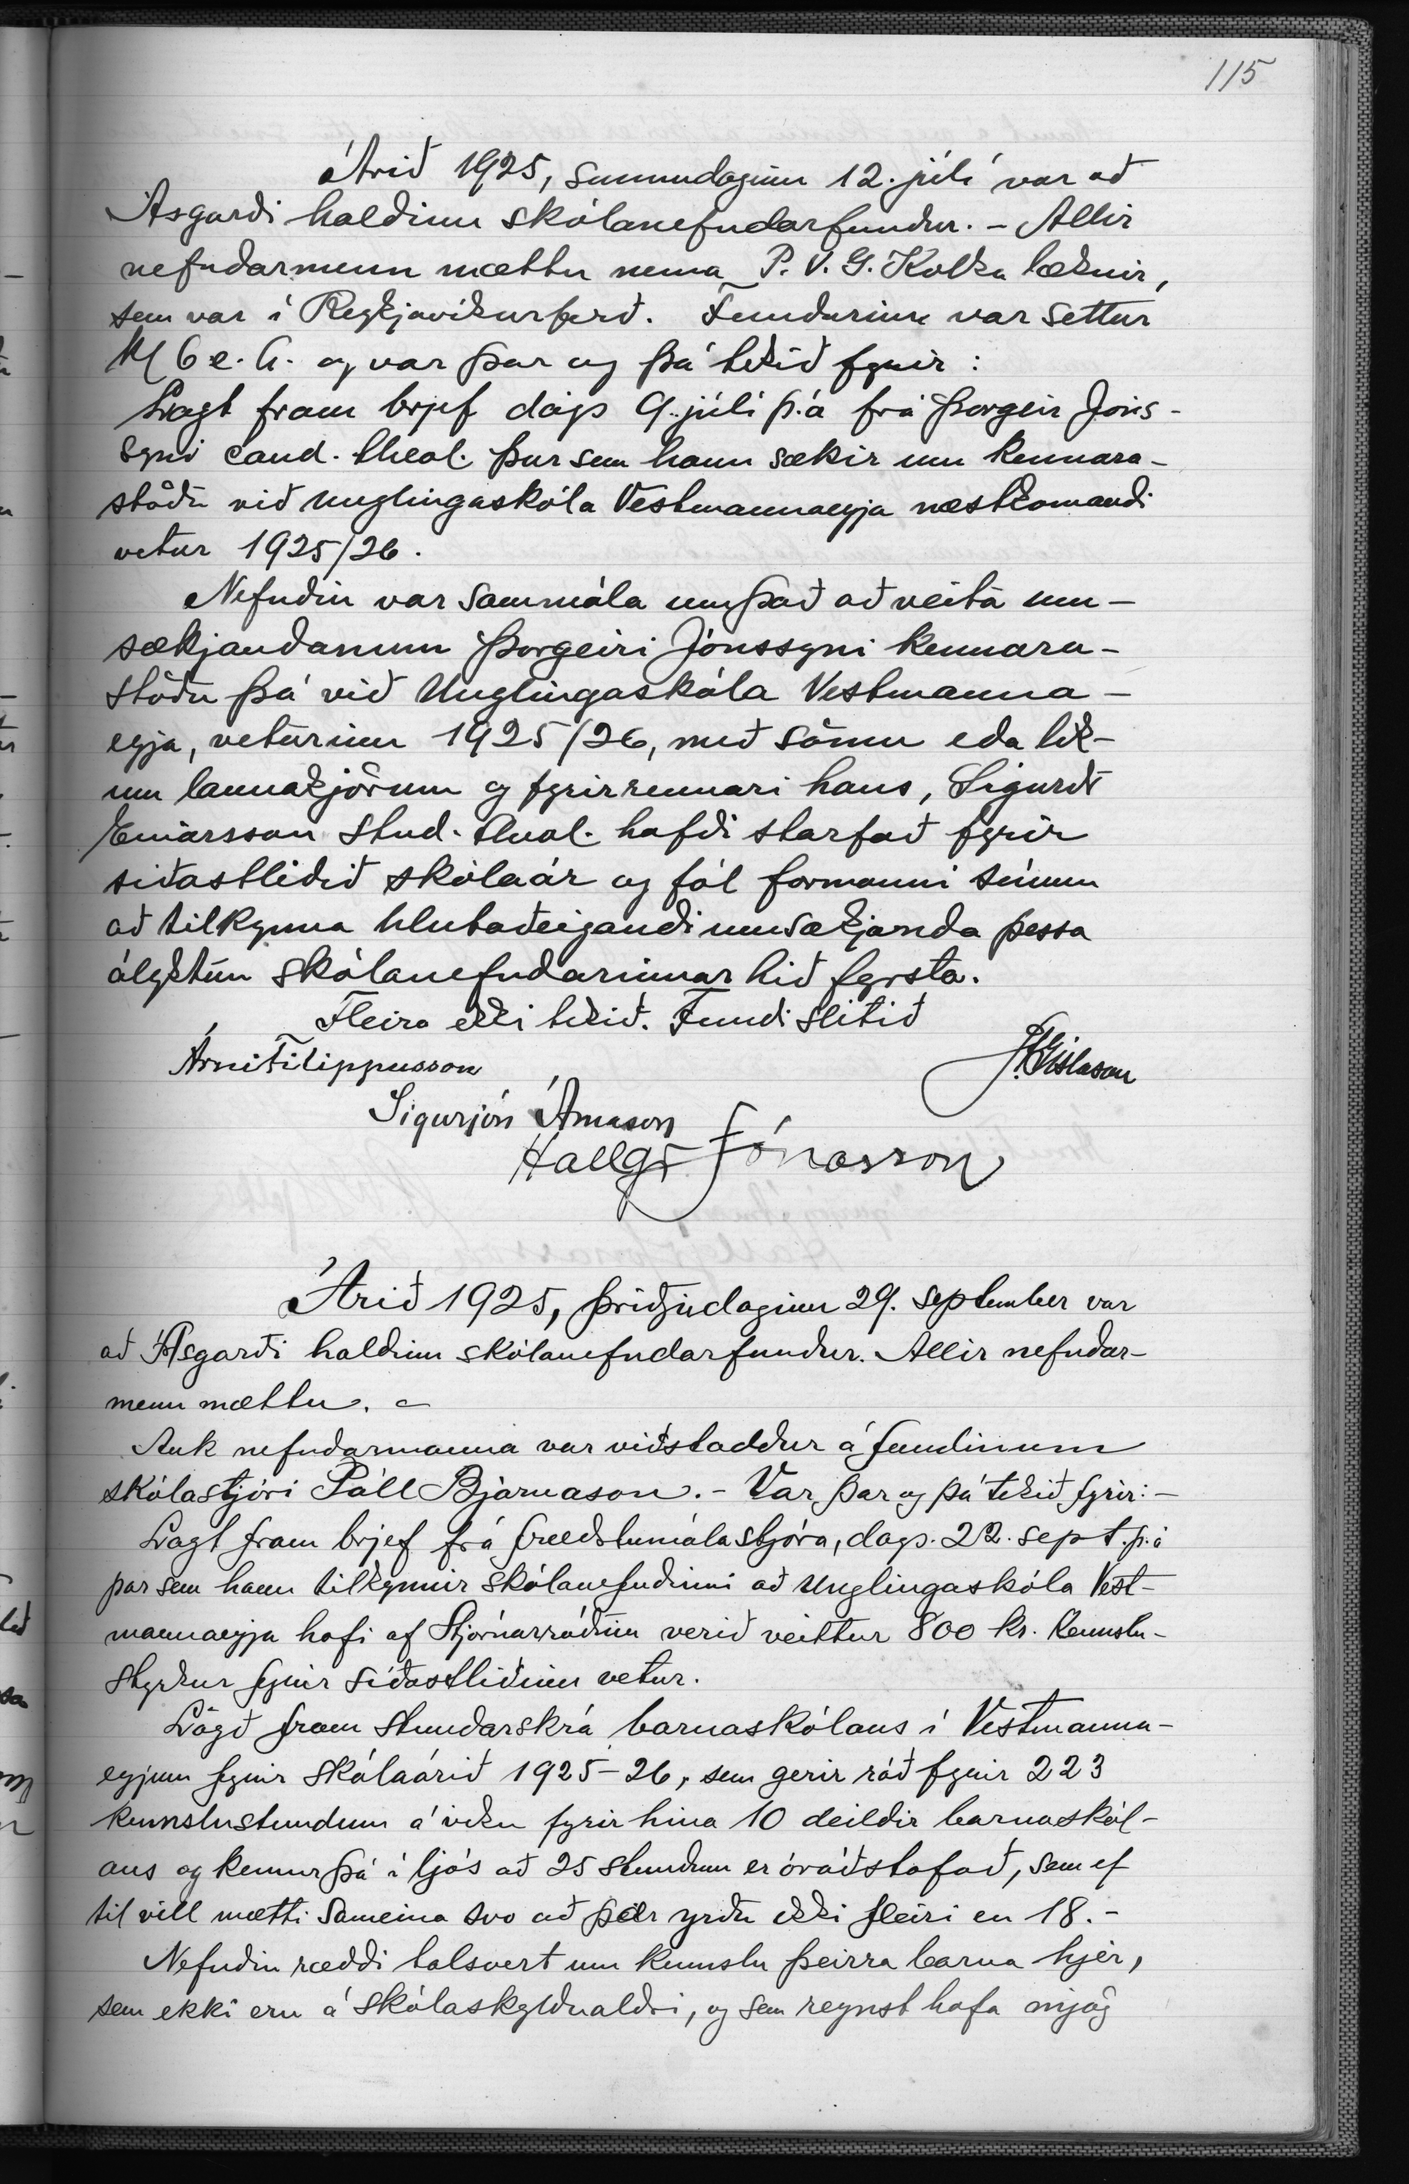 115
Árið 1925, sunnudaginn 12. júlí var að
Ásgarði haldinn skólanefndarfundur. - Allir
nefndarmenn mættu nema P. V. G. Kolka læknir,
sem var í Reykjavíkurferð. Fundurinn var settur
kl 6 e. h. og var þar og þá tekið fyrir:
Lagt fram brjef dags 9. júlí þ.á frá Þorgeir Jóns-
syni cand. theol. þar sem hann sækir um kennara-
stöðu við unglingaskóla Vestmannaeyja næstkomandi
vetur 1925/26.
Nefndin var sammála um það að veita um-
sækjandanum Þorgeiri Jónssyni kennara-
stöðu þá við Unglingaskóla Vestmanna-
eyja, veturinn 1925/26, með sömu eða lík-
um launakjörum og fyrirrennari hans, Sigurðr
Einarsson stud. theol. hafði starfað fyrir
síðastliðið skólaár og fól formanni sínum
að tilkynna hlutaðeigandi umsækjanda þessa
ályktun skólanefndarinnar hið fyrsta.
Fleira ekki tekið. Fundi slitið
Árni Filippusson
J. P. Gíslason
Sigurjón Árnason
Hallgr Jónasson
Árið 1925, þriðjudaginn 29. september var
að Ásgarði haldinn skólanefndarfundur. Allir nefndar-
menn mættu. -
Auk nefndarmanna var viðstaddur á fundinum
skólastjóri Páll Bjarnason. - Var þar og þá tekið fyrir: -
Lagt fram brjef frá fræðslumálastjóra, dags. 22. sept. þ.á
þar sem hann tilkynnir skólanefndinni að Unglingaskóla Vest-
mannaeyja hafi af Stjórnarráðinu verið veittur 800 kr. kennslu-
styrkur fyrir síðastliðinn vetur.
Lögð fram stundarskrá barnaskólans í Vestmanna-
eyjum fyrir skólaárið 1925-26, sem gerir ráð fyrir 223
kennslustundum á viku fyrir hina 10 deildir barnaskól-
ans og kemur þá í ljós að 25 stundum er óráðstafað, sem ef
til vill mætti sameina svo að þær yrðu ekki fleiri en 18. -
Nefndin ræddi talsvert um kennslu þeirra barna hjér,
sem ekki eru á skólaskyldualdri, og sem reynst hafa mjög